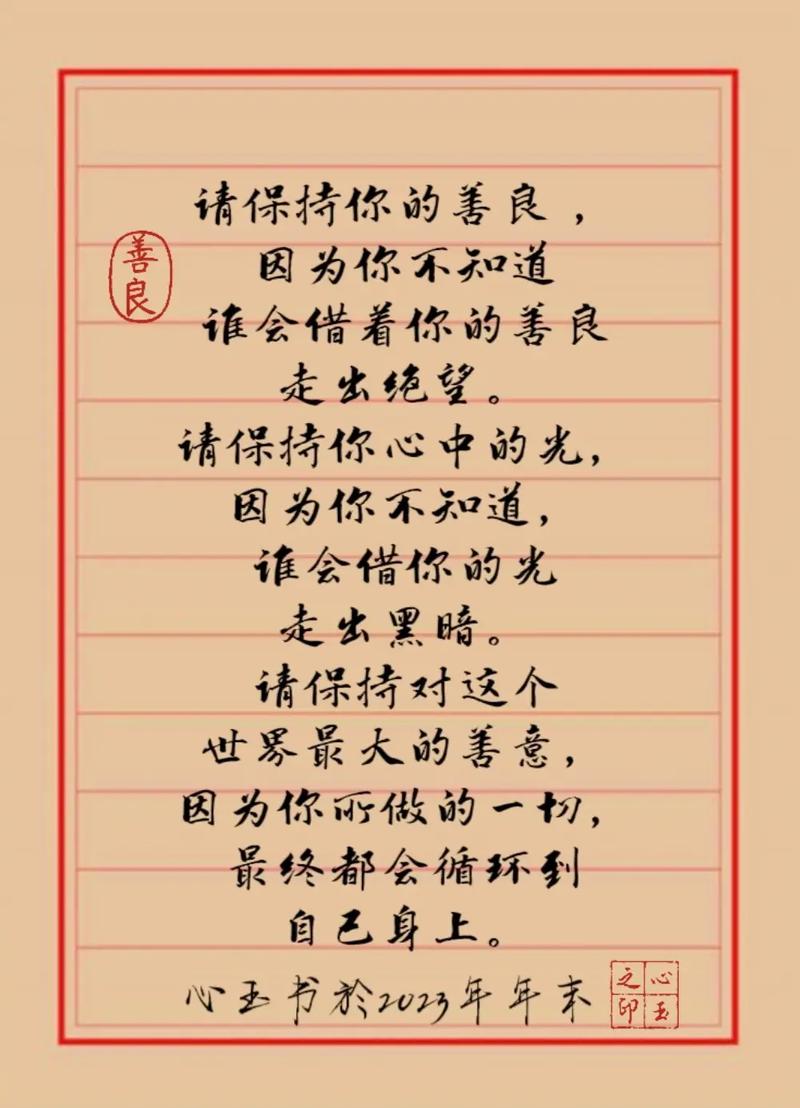 请保持你的善良，
善良
因为你不知道
谁会借着你的善良
走出绝望。
请保持你心中的光，
因为你不知道，
谁会借你的光
走出黑暗。
请保持对这个
世界最大的善意，
因为你所做的一切，
最终都会循环到
自己身上。
心玉书於2023年年末
心玉之印